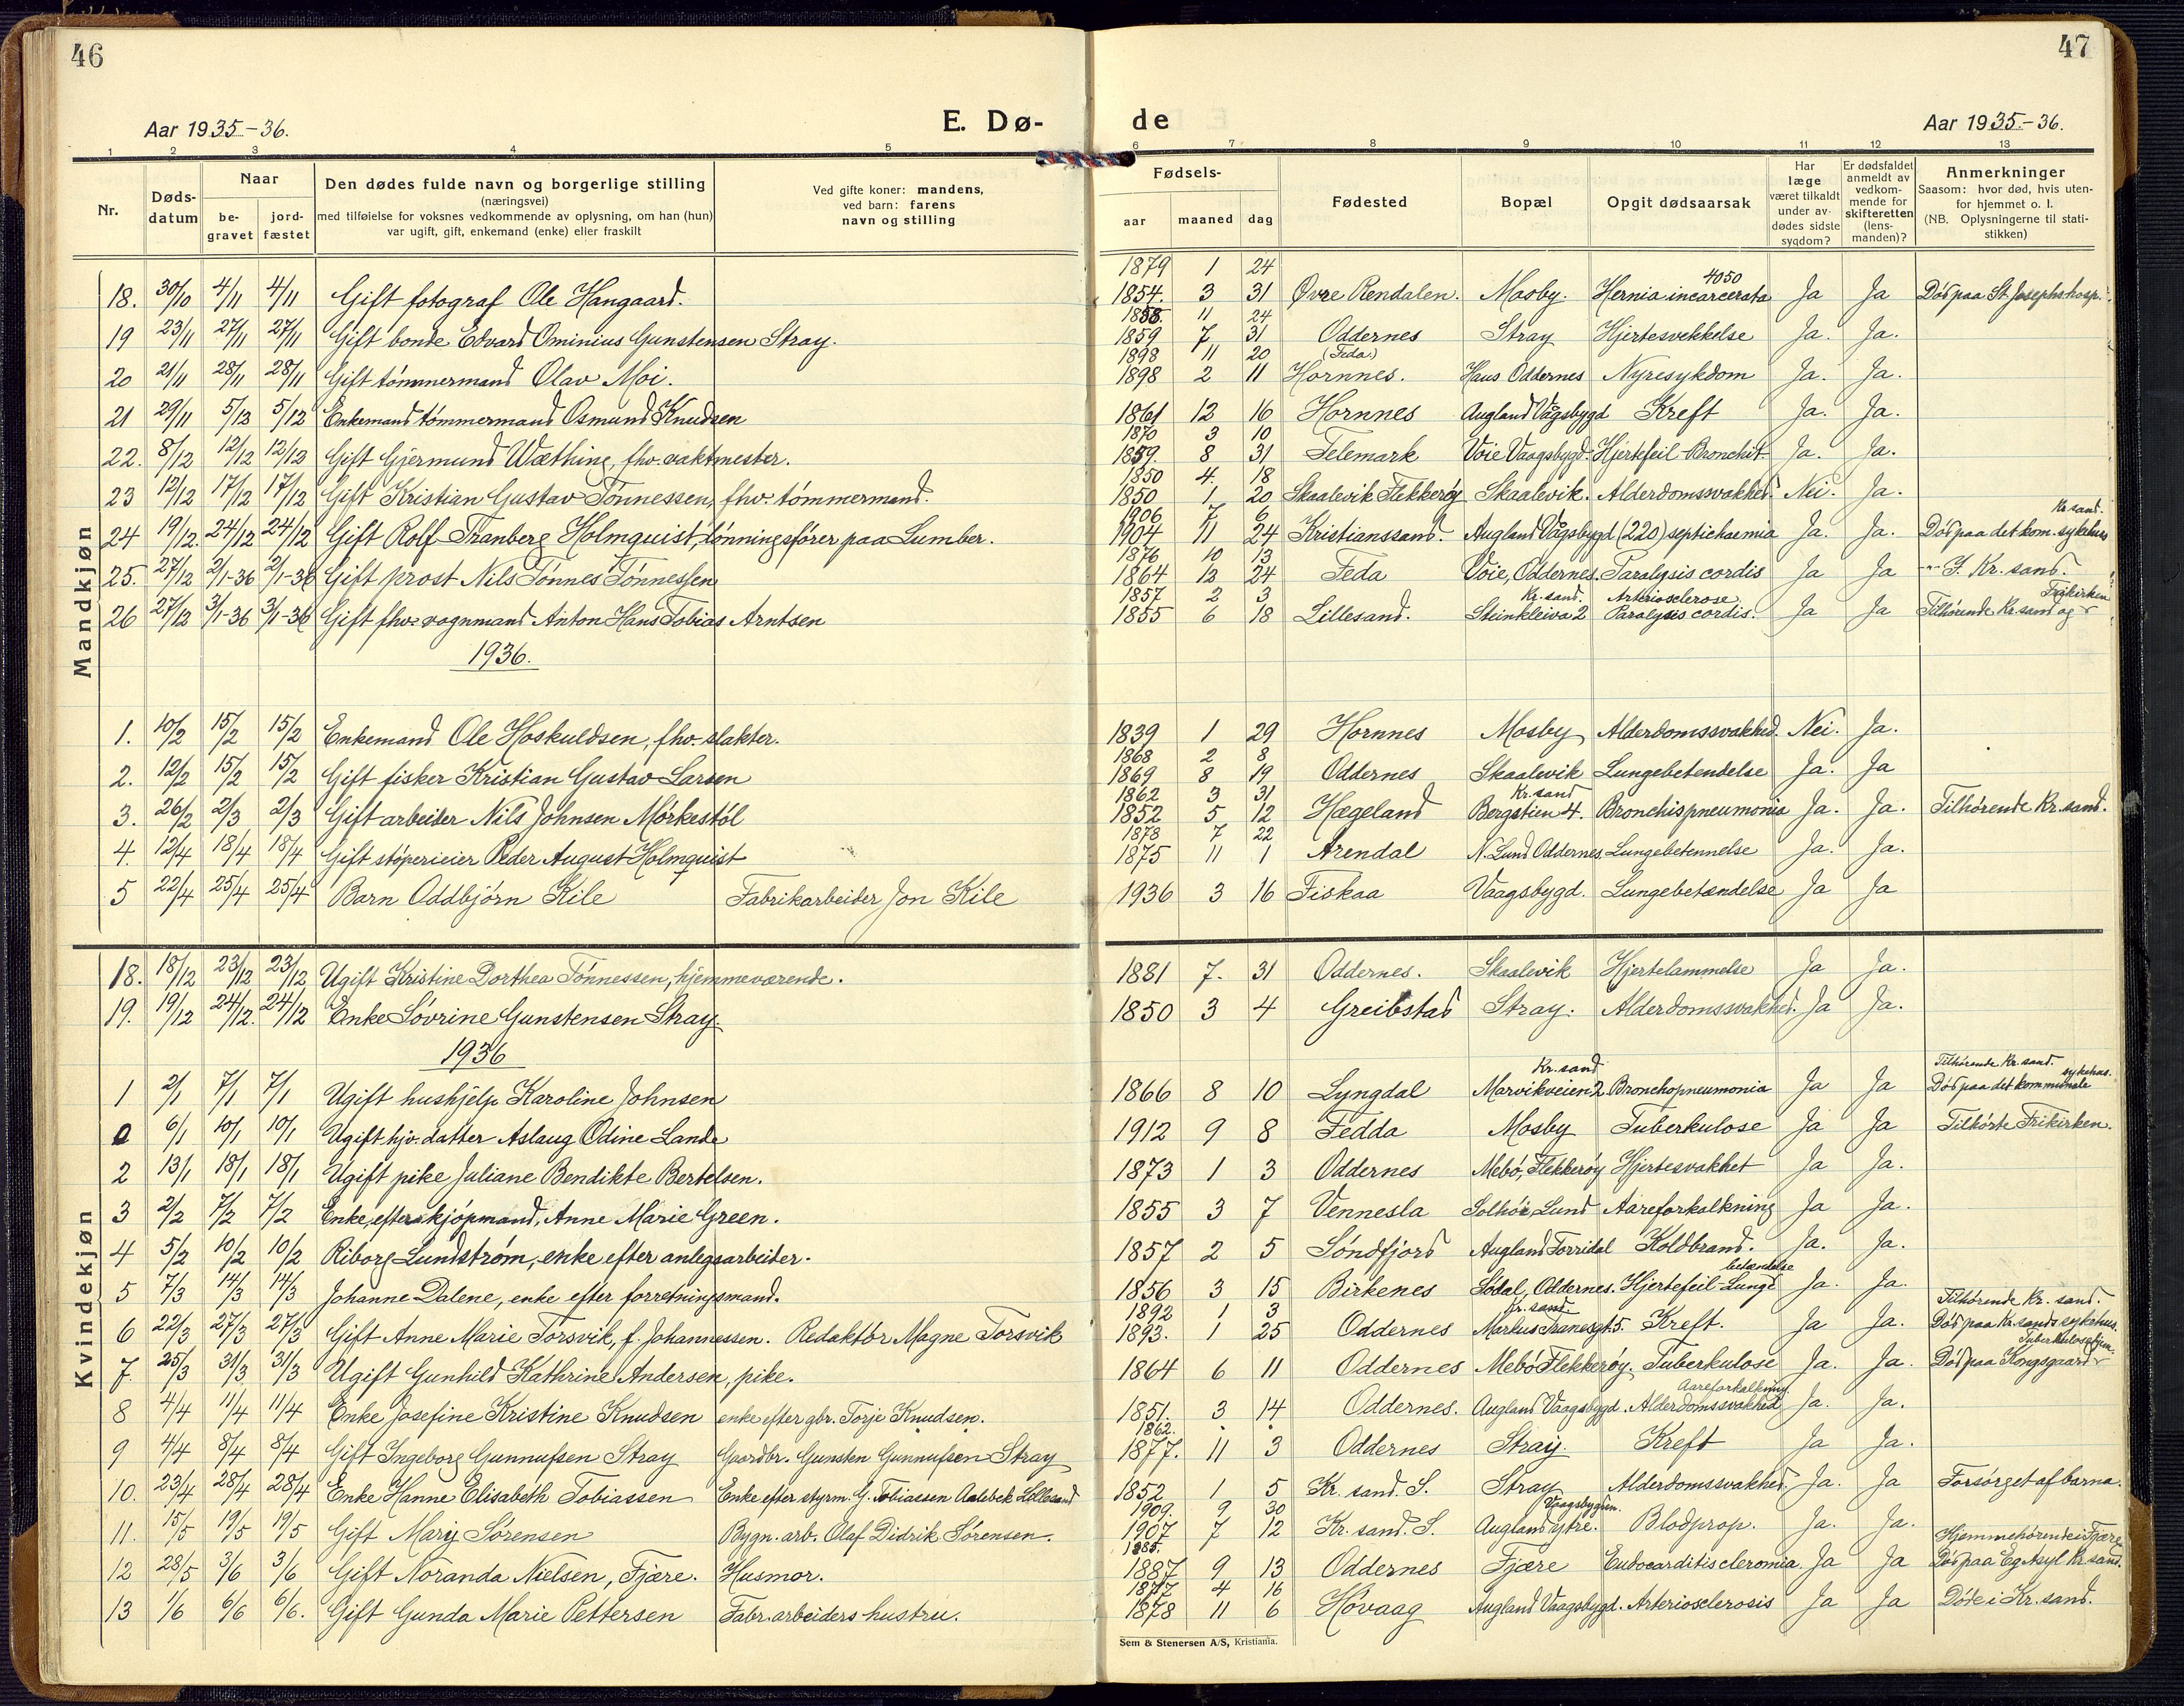 46
47
Aar 1935-36.
E. Dø-
de
Aar 1935-36.
1 2 3 4 5 6 7 8 9 10 11 12 13
Nr.
Døds-
datum
Naar
be-
gravet
jord-
fæstet
Den dødes fulde navn og borgerlige stilling
(næringsvei)
med tilføielse for voksnes vedkommende av oplysning, om han (hun)
var ugift, gift, enkemand (enke) eller fraskilt
Ved gifte koner: mandens,
ved barn: farens
navn og stilling
Fødsels-
aar
maaned
dag
Fødested
Bopæl
Opgit dødsaarsak
Har
læge
været tilkaldt
under av-
dødes sidste
sygdom?
Er dødsfaldet
anmeldt av
vedkom-
mende for
skifteretten
(lens-
manden)?
Anmerkninger
Saasom: hvor død, hvis uten-
for hjemmet o. l.
(NB. Oplysningerne til stati-
stikken)
Mandkjøn
1879 1 24
4050
18. 30/10 4/11 4/11 Gift fotograf Ole Hangaard. 1854. 3 31 Øvre Rendalen. Mosby. Hernia incarcerata Ja Ja Død paa St. Josephs hosp.
1858. 11 24
19 23/11 27/11 27/11 Gift bonde Edvard Ominius Gunstensen Stray. 1859 7 31 Oddernes Stray Hjertesvekkelse Ja. Ja.
1898 11 20 (Feda)
20 21/11 28/11 28/11 Gift tømmermand Olav Moi. 1898 2 11 Hornnes. Haus Oddernes Nyresykdom Ja. Ja.
21 29/11 5/12 5/12 Enkemand tømmermand Osmund Knudsen 1861 12 16 Hornnes Augland Vågsbygd Kreft Ja. Ja.
1870 3 10
22. 8/12 12/12 12/12 Gift Gjermund Wæthing, fhv. vaktmester. 1859. 8 31 Telemark Voie Vaagsbygd. Hjertefeil-Bronchit Ja. Ja.
1850 4. 18
23 12/12 17/12 17/12 Gift Kristian Gustav Tønnessen, fhv. tømmermand. 1850 1 20 Skaalevik Flekkerøy Skaalevik. Alderdomssvakhed. Nei. Ja.
1906 7 6 Kr.sand.
24 19/12. 24/12 24/12 Gift Rolf Tranberg Holmquist, lønningsfører paa Lumber. 1904 11 24 Kristianssand. Augland Vågsbygd (220) septichaemia Ja. Ja. Død paa det kom. sykehus
1876 10 13
25. 27/12 2/1-36 2/1-36 Gift prost Nils Tønnes Tønnessen 1864 12 24 Feda Voie, Oddernes. Paralysis cordis Ja Ja -"- I Kr. sand.
1857 2 3 Kr. sand. Arteriosclerose Frikirken
26 27/12 3/1-36 3/1-36 Gift fhv. vognmand Anton Hans Tobias Arntsen 1855 6 18 Lillesand. Steinkleiva 2 Paralysis cordis. Ja Ja Tilhørende Kr.sand og
1936.
1. 10/2 15/2 15/2 Enkemand Ole Hoskuldsen, fhv. slakter. 1839 1 29 Hornnes Mosby Alderdomssvakhed. Nei. Ja.
1868 2 8
2. 12/2 15/2 15/2 Gift fisker Kristian Gustav Larsen 1869 8 19 Oddernes Skaalevik Lungebetendelse Ja. Ja
1862 3 31 Kr. sand
3. 26/2 2/3 2/3 Gift arbeider Nils Johnsen Mørkestøl 1852 5 12 Hægeland Bergstien 4. Bronchispneumonia Ja. Ja. Tilhørende Kr.sand.
1878 7 22
4. 12/4 18/4 18/4 Gift støperieier Peder August Holmquist 1875 11 1 Arendal N. Lund Oddernes. Lungebetennelse Ja. Ja.
5 22/4 25/4 25/4 Barn Oddbjørn Kile Fabrikarbeider Jon Kile 1936 3 16 Fiskaa Vaagsbygd. Lungebetændelse Ja Ja
Kvindekjøn
18. 18/12 23/12 23/12 Ugift Kristine Dorthea Tønnessen, hjemmeværende. 1881 7. 31 Oddernes. Skaalevik Hjertelammelse Ja Ja.
19. 19/12 24/12. 24/12 Enke Søvrine Gunstensen Stray 1850 3 4 Greibstad Stray. Alderdomssvakhed. Ja Ja.
1936
Kr. sand Tilhørende Kr. sand. sykehus.
1 2/1 7/1 7/1 Ugift hushjelp Karoline Johnsen 1866 8 10 Lyngdal Marvikveien 2 Bronchopneumonia Ja Ja Død paa det kommunale
0 6/1 10/1 10/1 Ugift hjv. datter Aslaug Odine Lande 1912 9 8 Fedda Mosby Tuberkulose Ja Ja Tilhørte Frikirken.
2 13/1 18/1 18/1 Ugift pike Juliane Bendikte Bertelsen. 1873 1 3 Oddernes Mebø, Flekkerøy Hjertesvakhet Ja Ja.
3 2/2 7/2 7/2 Enke, efter skjøpmand, Anne Marie Green. 1855 3 7 Vennesla Solhøi, Lund Aareforkalkning Ja Ja.
4 5/2 10/2 10/2 Riborg Lundstrøm, enke efter anlegsarbeider. 1857 2 5 Søndfjord Augland Torridal Koldbrand. Ja. Ja.
betændelse
5 7/3 14/3 14/3 Johanne Dalene, enke efter forretningsmand. 1856 3 15 Birkenes Sødal, Oddernes. Hjertefeil-Lunge Ja. Ja.
1892 1 3 Kr. sand Tilhørende Kr. sand.
6 22/3 27/3 27/3 Gift Anne Marie Torsvik, f. Johannessen. Redaktør Magne Torsvik 1893. 1 25 Oddernes Markus Tranesgt. 5. Kreft. Ja Ja. Død paa Kr. sands sykehus.
Tuberkulosehjem.
7. 25/3 31/3 31/3 Ugift Gunhild Kathrine Andersen, pike. 1864 6 11 Oddernes Mebø Flekkerøy. Tuberkulose Ja. Ja. Død paa Kongsgaard
Aareforkalkning
8 4/4 11/4 11/4 Enke Josefine Kristine Knudsen enke efter gbr. Torje Knudsen. 1851. 3 14 Oddernes. Augland Vaagsbygd. Alderdomssvakhed Ja. Ja.
1862.
9 4/4 8/4 8/4 Gift Ingeborg Gunnufsen Stray Gaardbr. Gunsten Gunnufsen Stray 1877. 11 3 Oddernes Stray. Kreft Ja Ja.
10. 23/4 28/4 28/4 Enke Hanne Elisabeth Tobiassen Enke efter styrm. G. Tobiassen Aalebek Lillesand 1852 1 5 Kr. sand. S. Stray Alderdomssvakhed. Ja. Ja Forsørget af barna.
1909. 9 30 Vaagsbygden.
11. 15/5 19/5 19/5 Gift Mary Sørensen Bygn. arb. Olaf Didrik Sørensen. 1907 7 12 Kr. sand. S. Augland ytre. Blodprop. Ja. Ja.
1885. Hjemmehørende i Fjære
12 28/5 3/6 3/6 Gift Noranda Nielsen, Fjære. Husmor. 1887 9 13 Oddernes Fjære Endocarditis cleromia Ja Ja Død paa Eg Asyl Kr. sand.
1877 4 16
13 1/6 6/6 6/6. Gift Gunda Marie Pettersen Fabr. arbeiders hustru. 1878 11 6 Høvaag Augland Vaagsbygd. Arteriosclerosis Ja Ja Døde i Kr. sand.
Sem & Stenersen A/S, Kristiania.